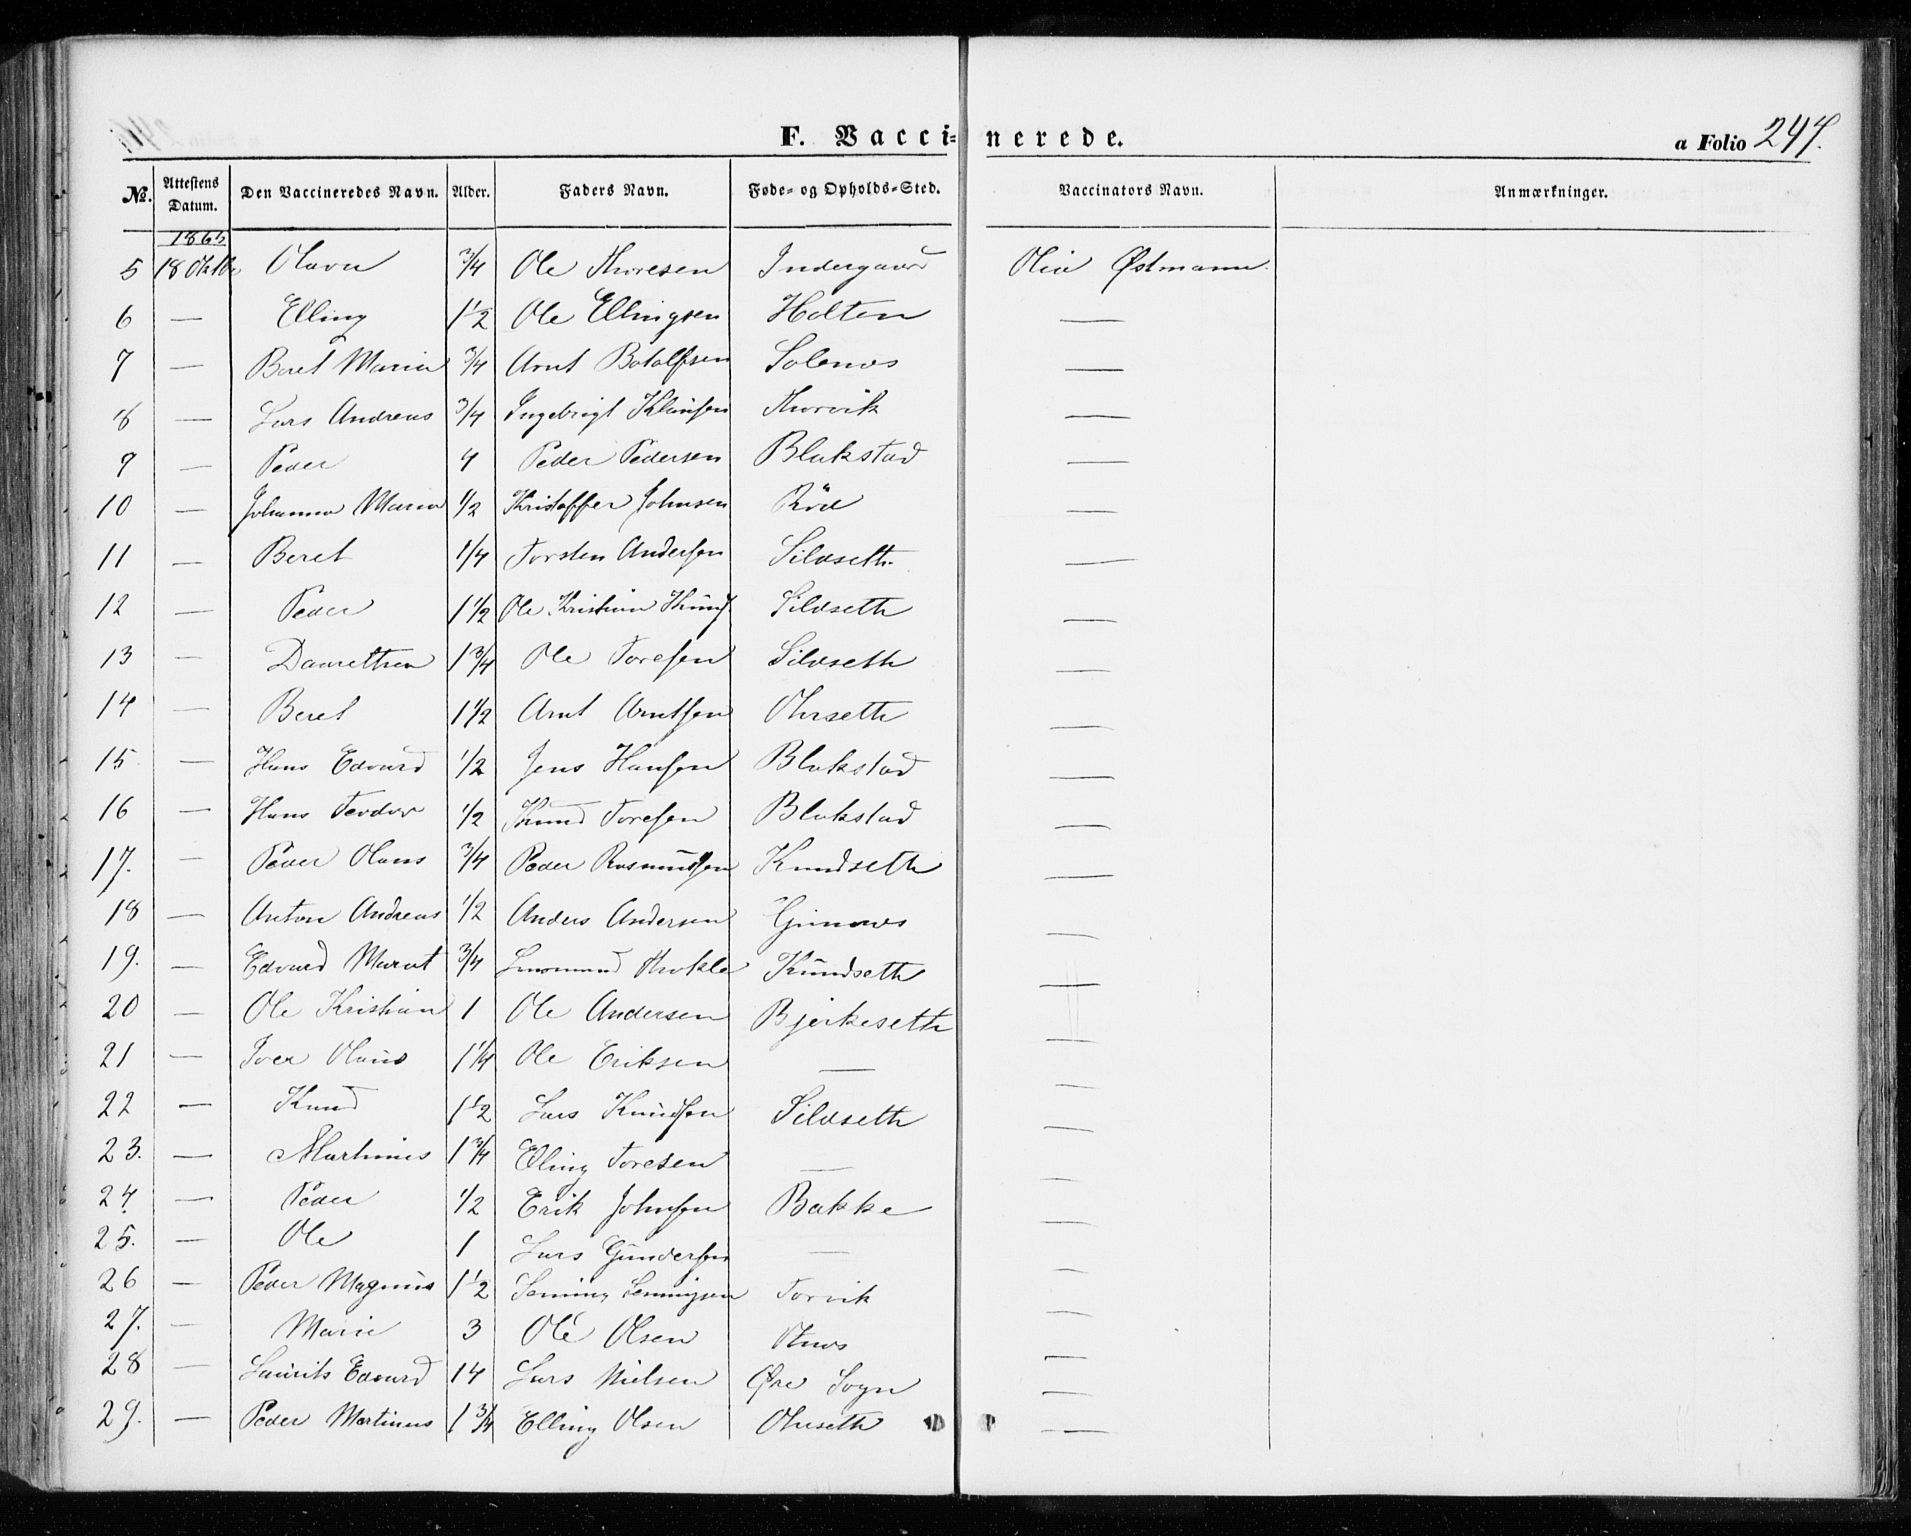 F. Vaccinerede.
a Folio 247.
No. Attestens Datum. Den Vaccineredes Navn. Alder. Faders Navn. Føde- og Opholds-Sted. Vaccinators Navn. Anmærkninger.
1865
5 18 Oktbr 3/4 Ole Thoresen Indergaard Østmann
6 — Elling 1 1/2 Ole Ellingsen Holten —
7 — Beret Maria 3/4 Arnt Botolfsen —
8 — Lars Andreas 3/4 Ingebrigt Thorvik —
9 — Peder 4 Peder Pedersen Blakstad —
10 — Johanna Maria 1/2 Kristoffer Johnsen Röd —
11 — Beret 1/4 Torsten Andersen Silseth —
12 — Peder 1 1/2 Ole Kristian Silseth —
13 — 1 3/4 Ole Toresen Silseth —
14 — Beret 1 1/2 Arnt Arntsen —
15 — Hans Edvard 1/2 Jens Hansen Blakstad —
16 — Hans Teodor 1/2 Knud Toresen Blakstad —
17. — Peder Olaus 3/4 Peder Rasmussen Knudseth —
18 — Anton Andreas 1/2 Anders Andersen Gimnes —
19. — Edvard 3/4 Knudseth —
20 — Ole Kristian 1 Ole Andersen Bjerkeseth —
21 — Iver Olaus 1 1/4 Ole Eriksen — —
22 — Knud 1 1/2 Lars Knudsen Silseth —
23. — Martinus 1 3/4 Elling Toresen — —
24. — Peder 1/2 Erik Johnsen Bakke —
25. — Ole 1 Lars Gundersen — —
26 — Peder Magnus 1 1/2 Torvik —
27. — Marie 3 Ole Olsen —
28 — Laurits Edvard 14 Lars Nielsen Øre Sogn —
29. — Peder Martinus 1 3/4 Elling Olsen —